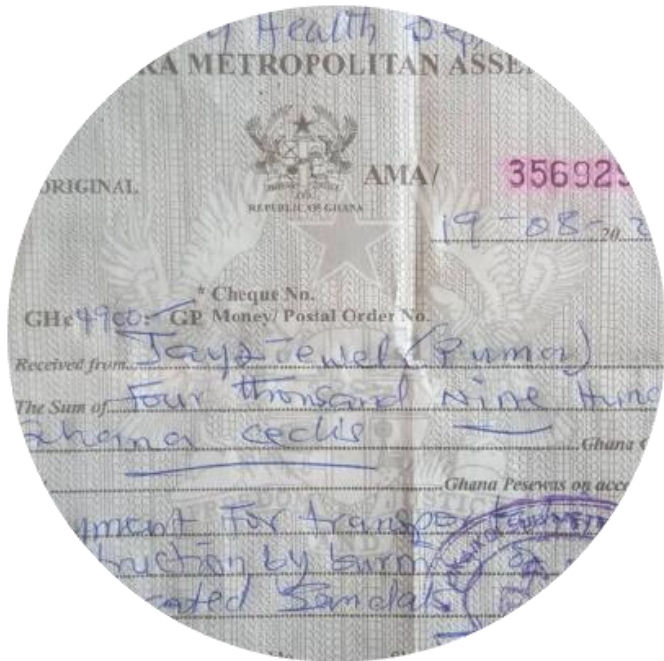 Health Dep
RA METROPOLITAN ASSE
ORIGINAL
AMA/ 356929
REPUBLIC OF GHANA
19-08-20
* Cheque No.
GH¢4900: GP Money/ Postal Order No.
Received from
The Sum of Four thousand Nine Hund
Ghana cedis Ghana
Ghana Pesewas on acc
yment For transportation
truction by burn
cated Sandals